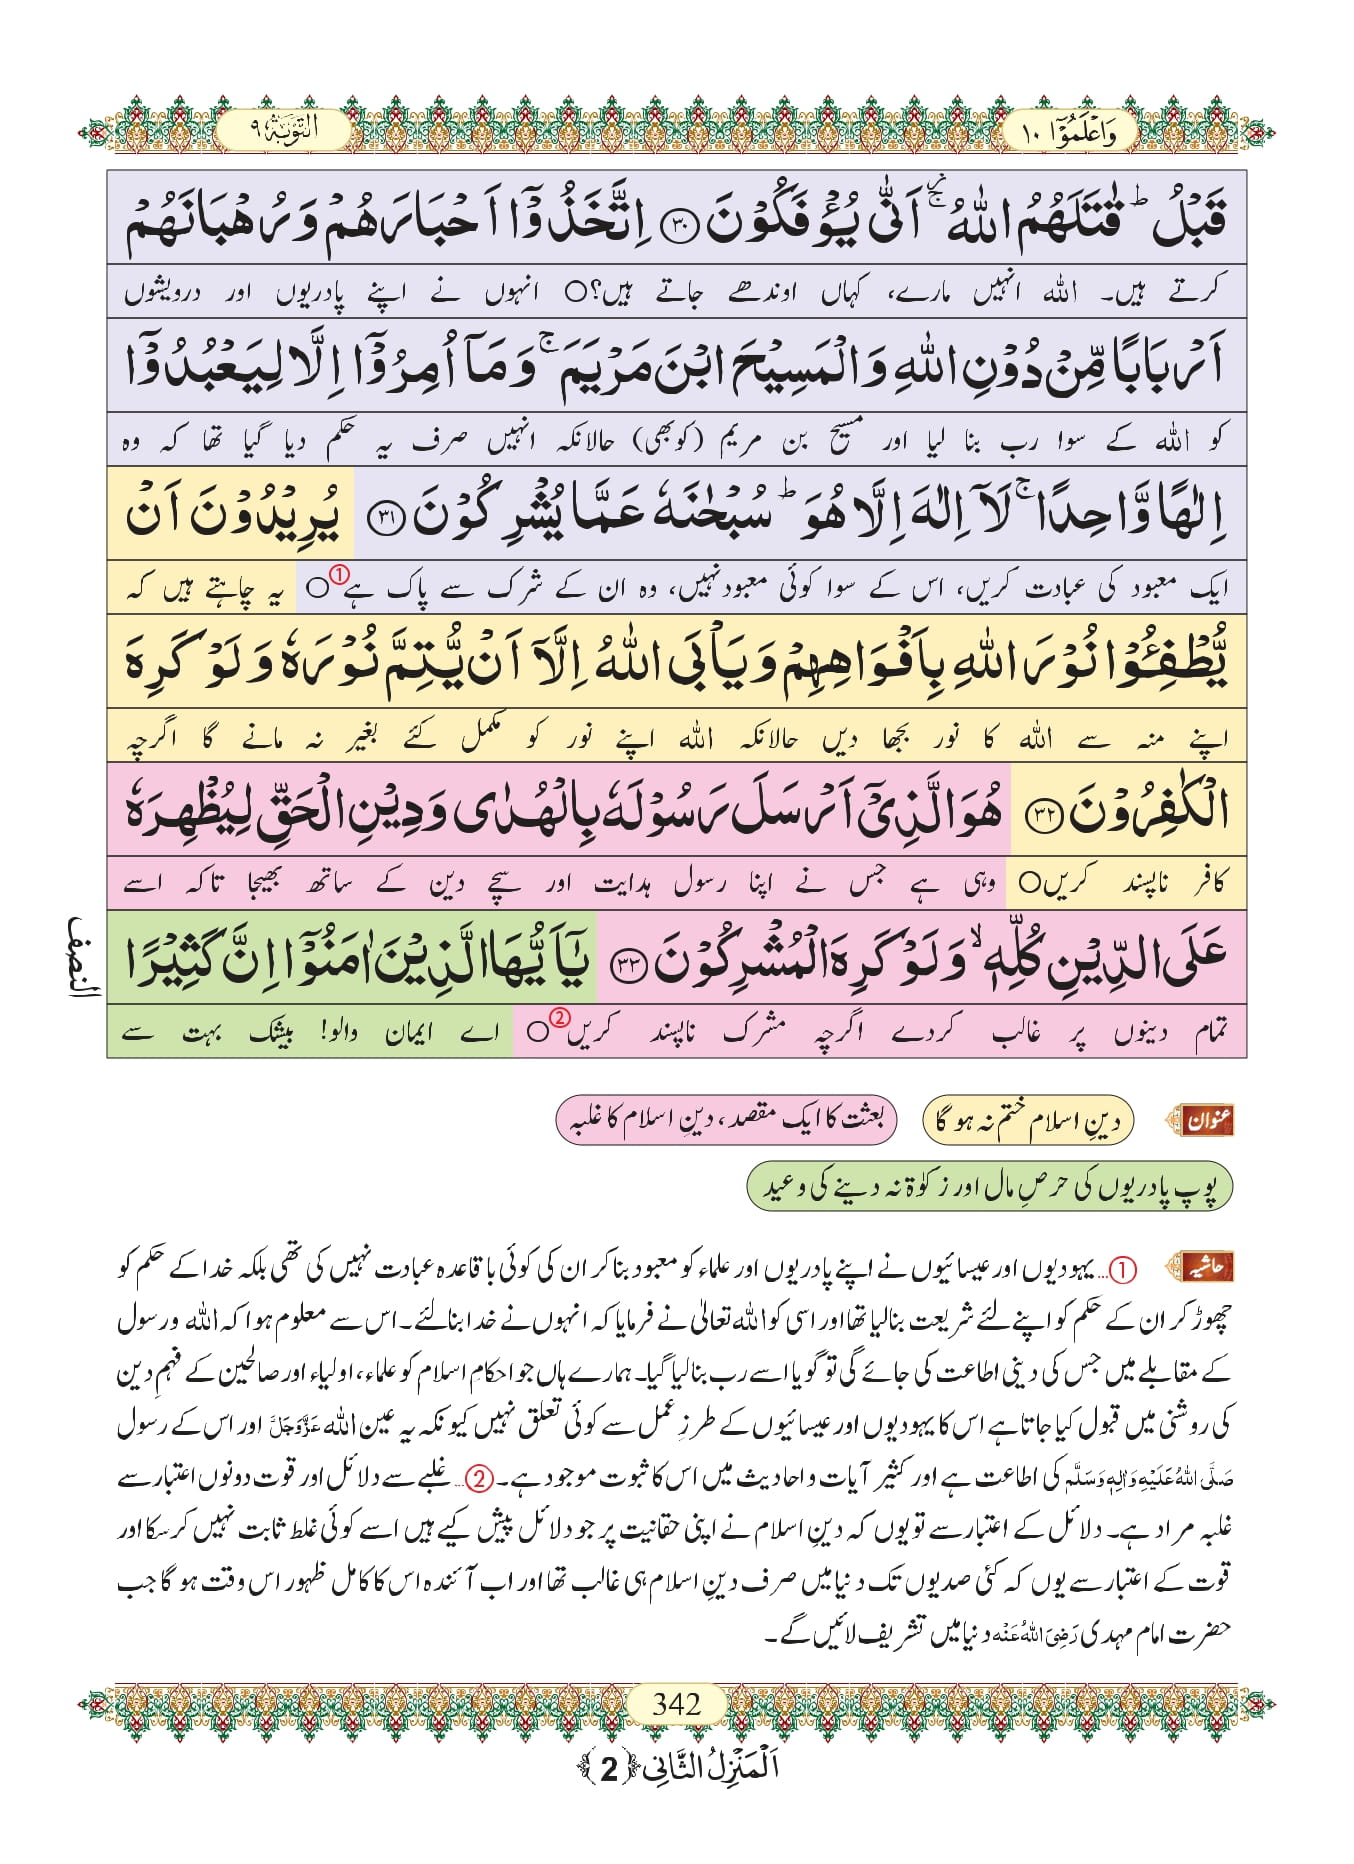 وَاعْلَمُوْۤا ۱۰
التَّوْبَة ۹
قَبْلُ ؕ قٰتَلَهُمُ اللّٰهُ ۚ۫ اَنّٰى یُؤْفَكُوْنَ ﴿۳۰﴾ اِتَّخَذُوْۤا اَحْبَارَهُمْ وَ رُهْبَانَهُمْ
کرتے ہیں۔ اللہ انہیں مارے، کہاں اوندھے جاتے ہیں؟○ انہوں نے اپنے پادریوں اور درویشوں
اَرْبَابًا مِّنْ دُوْنِ اللّٰهِ وَ الْمَسِیْحَ ابْنَ مَرْیَمَ ۚ وَ مَاۤ اُمِرُوْۤا اِلَّا لِیَعْبُدُوْۤا
کو اللہ کے سوا رب بنا لیا اور مسیح بن مریم (کوبھی) حالانکہ انہیں صرف یہ حکم دیا گیا تھا کہ وہ
اِلٰهًا وَّاحِدًا ۚ لَاۤ اِلٰهَ اِلَّا هُوَ ؕ سُبْحٰنَهٗ عَمَّا یُشْرِكُوْنَ ﴿۳۱﴾ یُرِیْدُوْنَ اَنْ
ایک معبود کی عبادت کریں، اس کے سوا کوئی معبود نہیں، وہ ان کے شرک سے پاک ہے①○ یہ چاہتے ہیں کہ
یُّطْفِـُٔوْا نُوْرَ اللّٰهِ بِاَفْوَاهِهِمْ وَ یَاْبَى اللّٰهُ اِلَّاۤ اَنْ یُّتِمَّ نُوْرَهٗ وَ لَوْ كَرِهَ
اپنے منہ سے اللہ کا نور بجھا دیں حالانکہ اللہ اپنے نور کو مکمل کئے بغیر نہ مانے گا اگرچہ
الْكٰفِرُوْنَ ﴿۳۲﴾ هُوَ الَّذِیْۤ اَرْسَلَ رَسُوْلَهٗ بِالْهُدٰى وَ دِیْنِ الْحَقِّ لِیُظْهِرَهٗ
کافر ناپسند کریں○ وہی ہے جس نے اپنا رسول ہدایت اور سچے دین کے ساتھ بھیجا تاکہ اسے
عَلَى الدِّیْنِ كُلِّهٖ ۙ وَ لَوْ كَرِهَ الْمُشْرِكُوْنَ ﴿۳۳﴾ یٰۤاَیُّهَا الَّذِیْنَ اٰمَنُوْۤا اِنَّ كَثِیْرًا
النصف
تمام دینوں پر غالب کردے اگرچہ مشرک ناپسند کریں②○ اے ایمان والو! بیشک بہت سے
عنوان دینِ اسلام ختم نہ ہو گا بعثت کا ایک مقصد، دینِ اسلام کا غلبہ
پوپ پادریوں کی حرصِ مال اور زکوٰۃ نہ دینے کی وعید
حاشیہ ①…یہودیوں اور عیسائیوں نے اپنے پادریوں اور علماء کو معبود بنا کر ان کی کوئی باقاعدہ عبادت نہیں کی تھی بلکہ خدا کے حکم کو
چھوڑ کر ان کے حکم کو اپنے لئے شریعت بنالیا تھا اور اسی کو اللہ تعالیٰ نے فرمایا کہ انہوں نے خدا بنالئے۔ اس سے معلوم ہوا کہ اللہ ورسول
کے مقابلے میں جس کی دینی اطاعت کی جائے گی تو گویا اسے رب بنالیا گیا۔ ہمارے ہاں جو احکامِ اسلام کو علماء، اولیاء اور صالحین کے فہمِ دین
کی روشنی میں قبول کیا جاتا ہے اس کا یہودیوں اور عیسائیوں کے طرزِ عمل سے کوئی تعلق نہیں کیونکہ یہ عین اللہ عَزَّوَجَلَّ اور اس کے رسول
صَلَّى اللهُ عَلَيْهِ وَاٰلِهٖ وَسَلَّم کی اطاعت ہے اور کثیر آیات و احادیث میں اس کا ثبوت موجود ہے۔ ②…غلبے سے دلائل اور قوت دونوں اعتبار سے
غلبہ مراد ہے۔ دلائل کے اعتبار سے تو یوں کہ دینِ اسلام نے اپنی حقانیت پر جو دلائل پیش کیے ہیں اسے کوئی غلط ثابت نہیں کرسکا اور
قوت کے اعتبار سے یوں کہ کئی صدیوں تک دنیا میں صرف دینِ اسلام ہی غالب تھا اور اب آئندہ اس کا کامل ظہور اس وقت ہو گا جب
حضرت امام مہدی رَضِیَ اللهُ عَنْه دنیا میں تشریف لائیں گے۔
342
اَلْمَنْزِلُ الثَّانِی ﴿2﴾